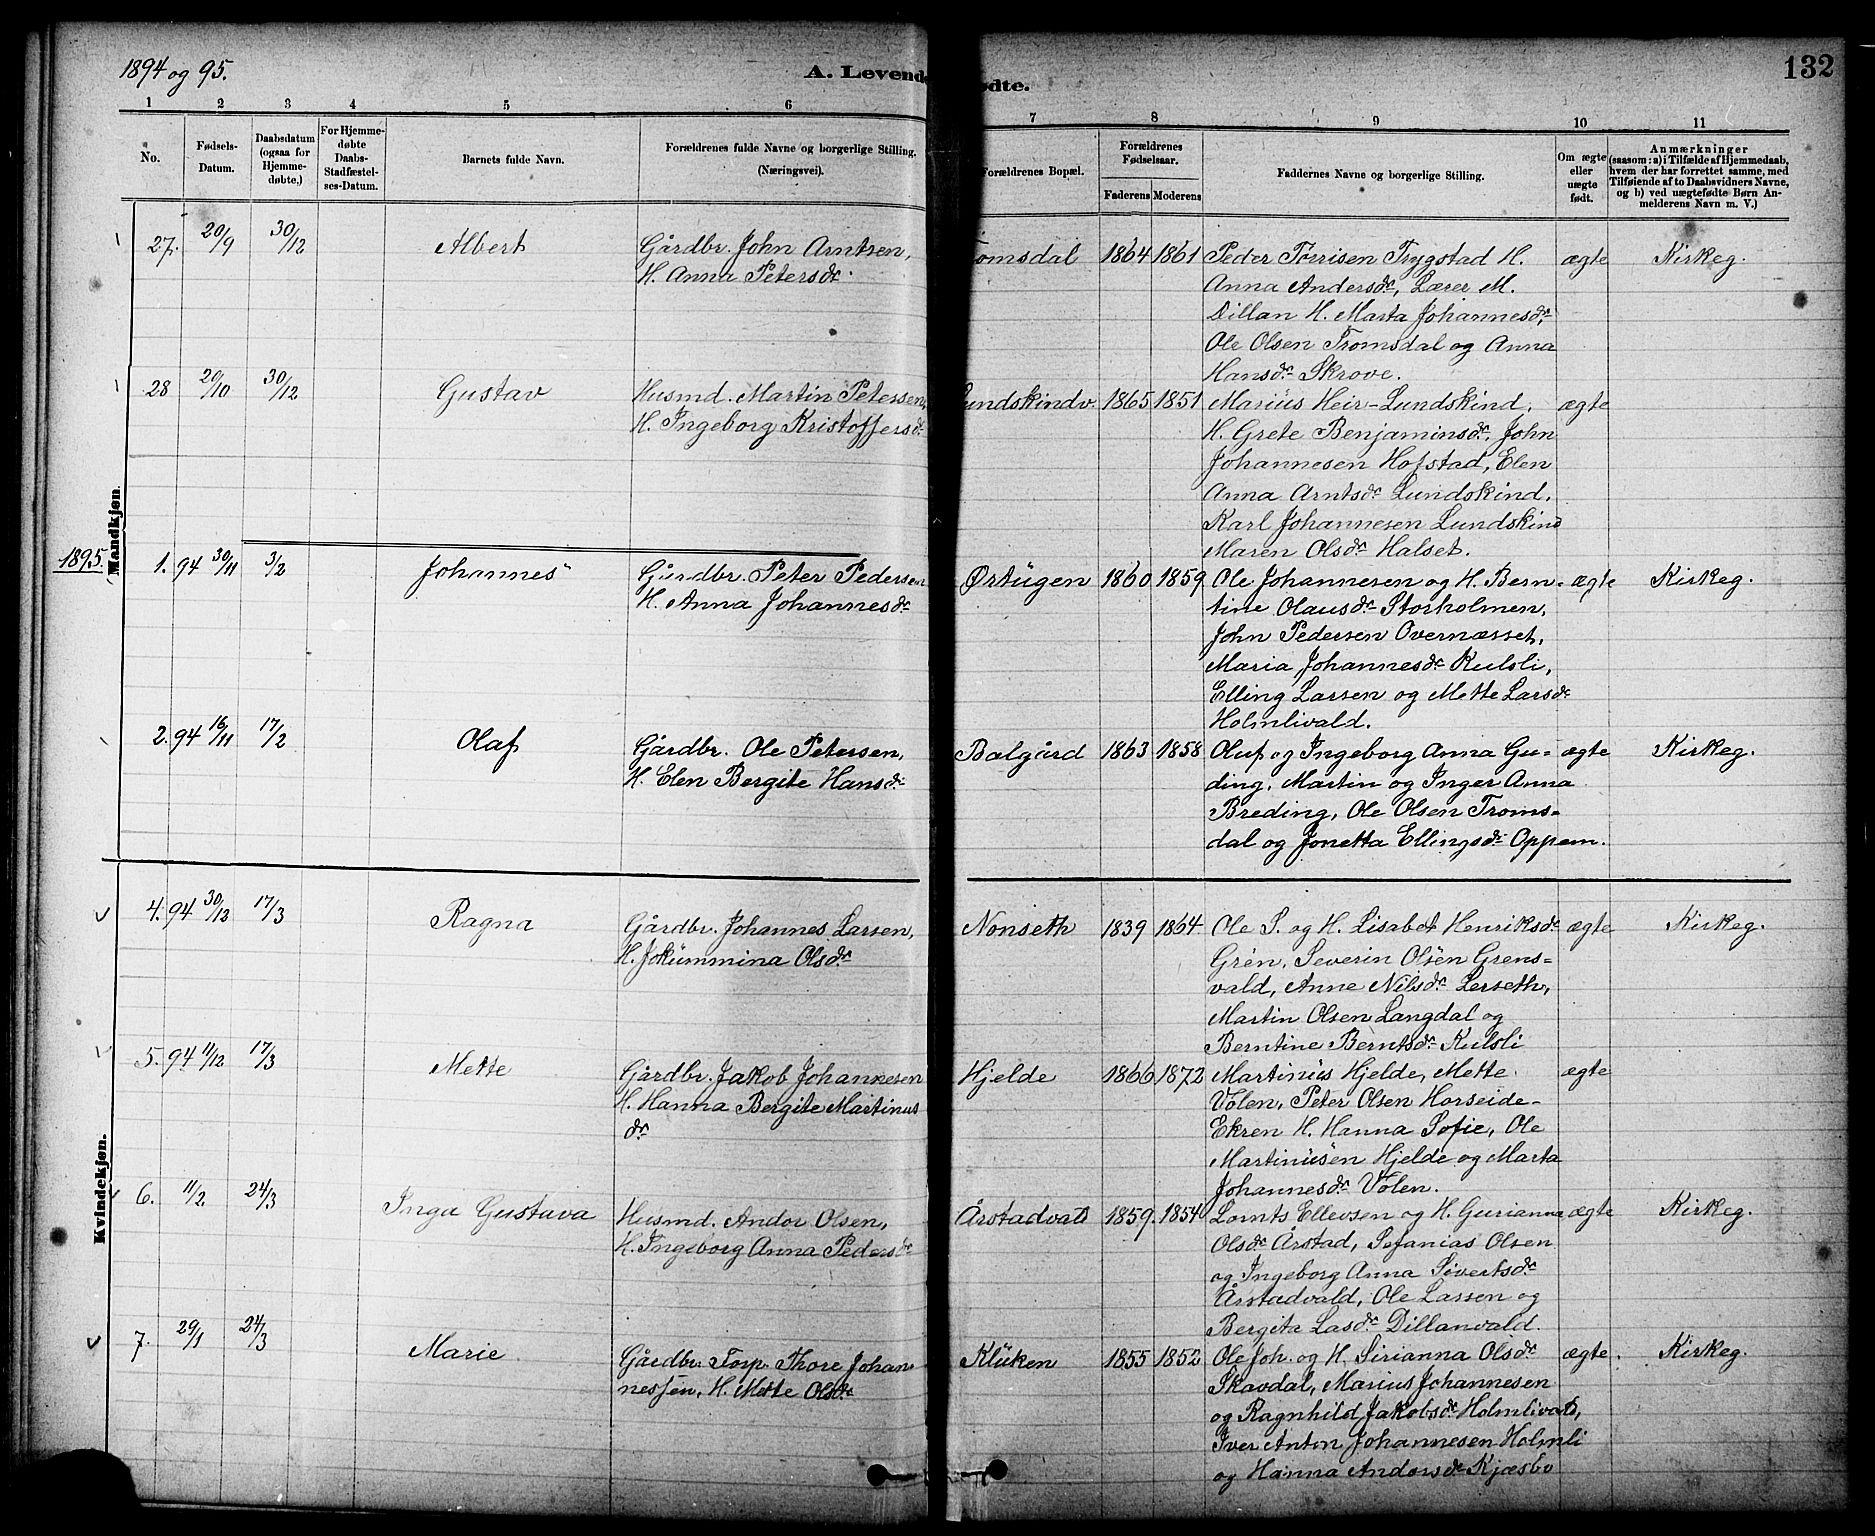 1894 og 95.
A. Levende
ødte.
132
1 2 3 4 5 6 7 8 9 10 11
No.
Fødsels-
Datum.
Daabsdatum
(ogsaa for
Hjemme-
døbte,)
For Hjemme-
døbte
Daabs-
Stadfæstel-
ses-Datum.
Barnets fulde Navn.
Forældrenes fulde Navne og borgerlige Stilling.
(Næringsvei).
Forældrenes Bopæl.
Forældrenes
Fødselsaar.
Faderens Moderens
Faddernes Navne og borgerlige Stilling.
Om ægte
eller
uægte
født.
Anmærkninger
(saasom: a) i Tilfælde af Hjemmedaab,
hvem der har forrettet samme, med
Tilføiende af to Daabsvidners Navne,
og b) ved uægtefødte Børn An-
melderens Navn m. V.)
Mandkjøn.
27. 20/9 30/12 Albert Gårdbr. John Arntsen, Tromsdal 1864 1861 Peder Torrisen Trygstad H. ægte Kirkeg.
H. Anna Petersdr. Anna Andersdr, Lærer M.
Dillan H. Marta Johannesdr,
Ole Olsen Tromsdal og Anna
Hansdr Skrove.
28 20/10 30/12 Gustav Husmd. Martin Petersen, Lundskindv. 1865 1851 Marius Heir-Lundskind, ægte
H. Ingeborg Kristoffersdr H. Grete Benjaminsdr, John
Johannesen Hofstad, Elen
Anna Arntsdr Lundskind,
Karl Johannesen Lundskind
Maren Olsdr Halset.
1895.
1. 94 30/11 3/2 Johannes Gårdbr. Peter Pedersen Ørtugen 1860 1859 Ole Johannesen og H. Bern- ægte Kirkeg.
H. Anna Johannesdr tine Olausdr Storholmen,
John Pedersen Overnæsset,
Maria Johannesdr Kulsli,
Elling Larsen og Mette Larsdr
Holmlivald.
2. 94 16/11 17/2 Olaf Gårdbr. Ole Petersen, Balgård 1863 1858 Oluf og Ingeborg Anna Gu- ægte Kirkeg.
H. Elen Bergite Hansdr ding, Martin og Inger Anna
Breding, Ole Olsen Troms-
dal og Jonetta Ellingsdr Oppem.
Kvindekjøn.
4. 94 30/12 17/3 Ragna Gårdbr. Johannes Larsen, Nonseth 1839 1864 Ole S. og H. Lisabet Henriksdr ægte Kirkeg.
H. Jokummina Olsdr Grén, Severin Olsen Grens-
vald, Anne Nilsdr Lerseth,
Martin Olsen Langdal og
Berntine Berntsdr Kulsli
5. 94 11/12 17/3 Mette Gårdbr. Jakob Johannesen Hjelde 1866 1872 Martinus Hjelde, Mette ægte
H. Hanna Bergite Martinus Volen, Peter Olsen Horseide-
dr Ekren H. Hanna Sofie, Ole
Martinusen Hjelde og Marta
Johannesdr Volen.
6. 11/2 24/3 Inga Gustava Husmd. Andor Olsen, Årstadvald 1859 1854 Lornts Ellevsen og H. Gurianna ægte Kirkeg.
H. Ingeborg Anna Pedersdr Olsdr Årstad, Sefanias Olsen
og Ingeborg Anna Sivertsdr
Årstadvald, Ole Larsen og
Bergita Lasdr Dillanvald.
7. 29/1 24/3 Marie Gårdbr. Torp. Thore Johan Klüken 1855 1852 Ole Joh. og H. Sirianna Olsdr ægte. Kirkeg.
nessen, H. Mette Olsdr Skavdal, Marius Johannesen
og Ragnhild Jakobsdr Holmlivald,
Iver Anton Johannesen Holmli
og Hanna Andorsdr Kjæsbo